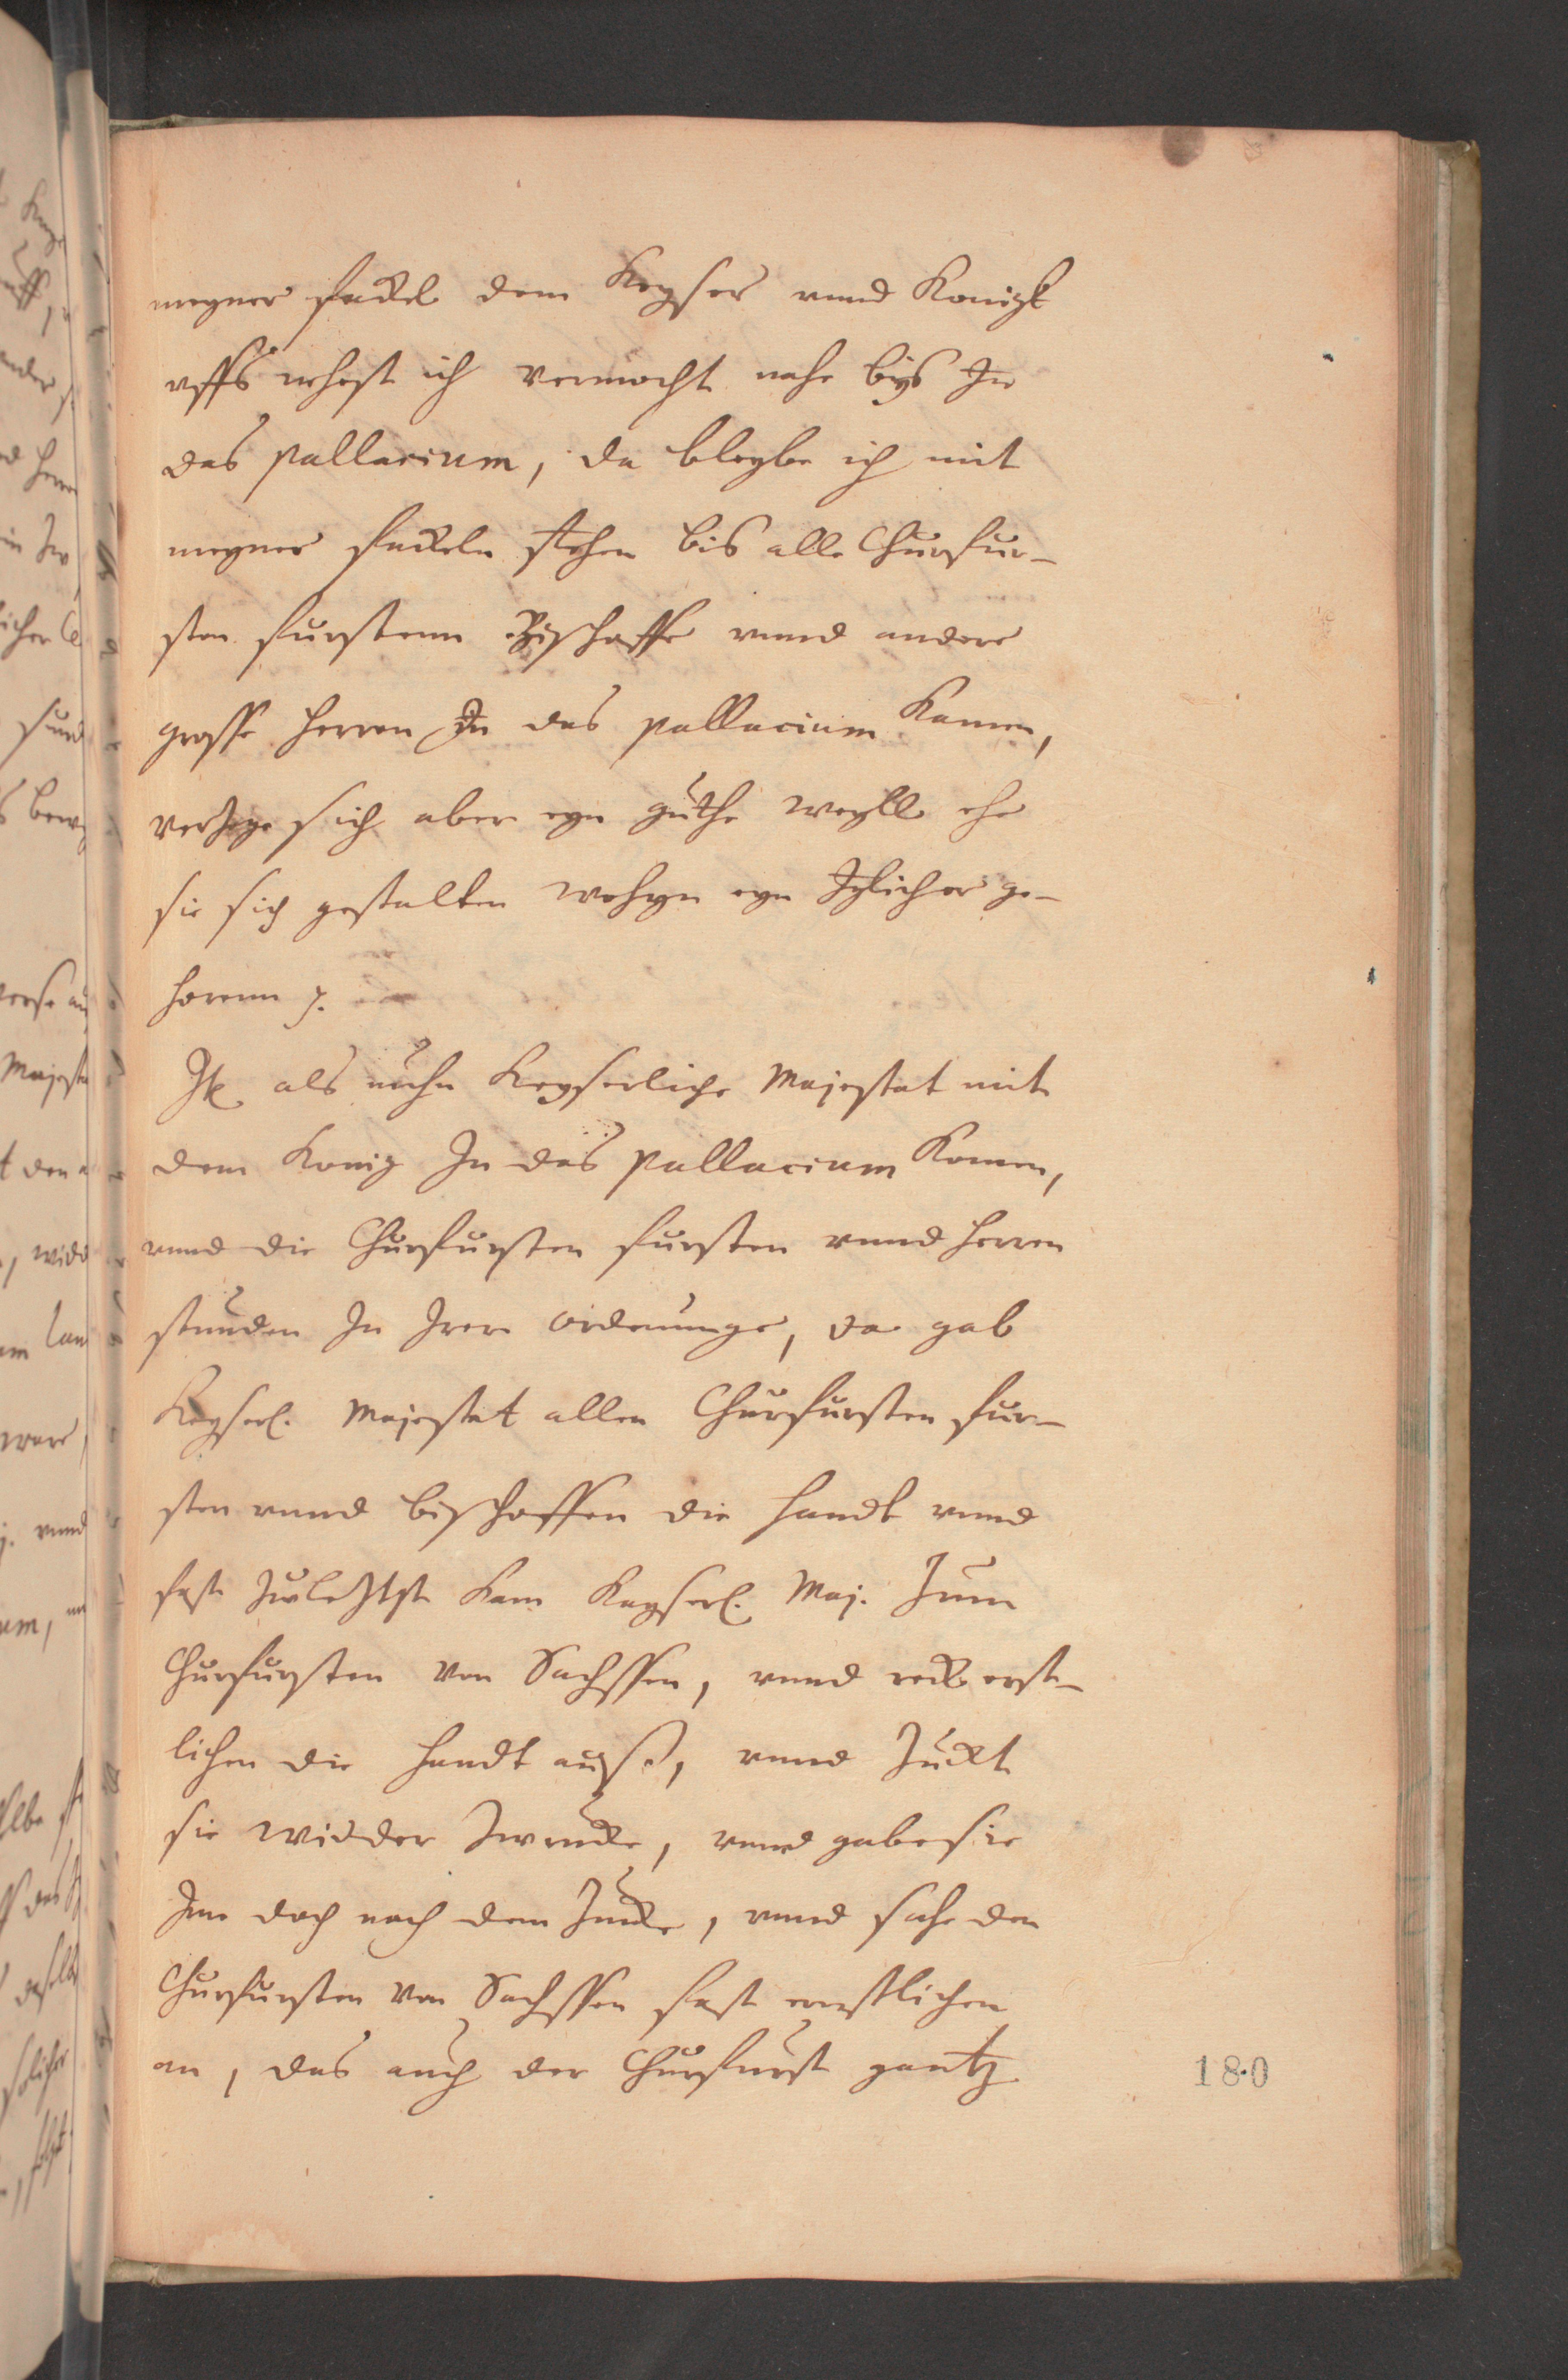 meyner fackel dem Keyser vnnd Konigk
vffs nehest ich vermocht nahe bys In
das pallacium, da bleybe ich mit
meyner fackeln stehen bis alle Churfur-
sten furstenn Bischoffe vnnd andere
grosse herren In das pallacium kamen,
verzoge sich aber eyn guthe weyll ehe
sie sich gestalten wohyn eyn Iglicher ge-
horenn
It als nuhn Keyserliche Majestat mit
dem Konig In das pallacium komen,
vnnd die Churfursten fursten vnnd herren
stunden In Irer ordenunge, da gab
Keyserl. Majestat allen Churfursten fur-
sten vnnd bischoffen die handt vnnd
fast zuletzst kam Kayserl. Maj. zum
Churfursten von Sachssen, vnnd reckt erst-
lichen die handt auß, vnnd zuckt
sie widder zurucke, vnnd gabe sie
Ime doch nach dem zucke, vnnd sahe den
Churfursten von Sachssen fast ernstlichen
an, das auch der Churfurst gantz
180